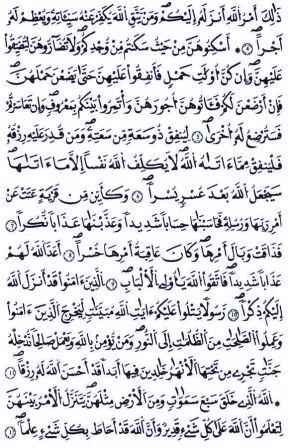 ذَٰلِكَ أَمْرُ ٱللَّهِ أَنزَلَهُۥٓ إِلَيْكُمْ وَمَن يَتَّقِ ٱللَّهَ يُكَفِّرْ عَنْهُ سَيِّـَٔاتِهِۦ وَيُعْظِمْ لَهُۥٓ
أَجْرًا ۝٥ أَسْكِنُوهُنَّ مِنْ حَيْثُ سَكَنتُم مِّن وُجْدِكُمْ وَلَا تُضَآرُّوهُنَّ لِتُضَيِّقُوا۟
عَلَيْهِنَّ وَإِن كُنَّ أُو۟لَٰتِ حَمْلٍ فَأَنفِقُوا۟ عَلَيْهِنَّ حَتَّىٰ يَضَعْنَ حَمْلَهُنَّ
فَإِنْ أَرْضَعْنَ لَكُمْ فَـَٔاتُوهُنَّ أُجُورَهُنَّ وَأْتَمِرُوا۟ بَيْنَكُم بِمَعْرُوفٍ وَإِن تَعَاسَرْتُمْ
فَسَتُرْضِعُ لَهُۥٓ أُخْرَىٰ ۝٦ لِيُنفِقْ ذُو سَعَةٍ مِّن سَعَتِهِۦ وَمَن قُدِرَ عَلَيْهِ رِزْقُهُۥ
فَلْيُنفِقْ مِمَّآ ءَاتَىٰهُ ٱللَّهُ لَا يُكَلِّفُ ٱللَّهُ نَفْسًا إِلَّا مَآ ءَاتَىٰهَا
سَيَجْعَلُ ٱللَّهُ بَعْدَ عُسْرٍ يُسْرًا ۝٧ وَكَأَيِّن مِّن قَرْيَةٍ عَتَتْ عَنْ
أَمْرِ رَبِّهَا وَرُسُلِهِۦ فَحَاسَبْنَٰهَا حِسَابًا شَدِيدًا وَعَذَّبْنَٰهَا عَذَابًا نُّكْرًا ۝٨
فَذَاقَتْ وَبَالَ أَمْرِهَا وَكَانَ عَٰقِبَةُ أَمْرِهَا خُسْرًا ۝٩ أَعَدَّ ٱللَّهُ لَهُمْ
عَذَابًا شَدِيدًا فَٱتَّقُوا۟ ٱللَّهَ يَٰٓأُو۟لِى ٱلْأَلْبَٰبِ ٱلَّذِينَ ءَامَنُوا۟ قَدْ أَنزَلَ ٱللَّهُ
إِلَيْكُمْ ذِكْرًا ۝١٠ رَّسُولًا يَتْلُوا۟ عَلَيْكُمْ ءَايَٰتِ ٱللَّهِ مُبَيِّنَٰتٍ لِّيُخْرِجَ ٱلَّذِينَ ءَامَنُوا۟
وَعَمِلُوا۟ ٱلصَّٰلِحَٰتِ مِنَ ٱلظُّلُمَٰتِ إِلَى ٱلنُّورِ وَمَن يُؤْمِنۢ بِٱللَّهِ وَيَعْمَلْ صَٰلِحًا يُدْخِلْهُ
جَنَّٰتٍ تَجْرِى مِن تَحْتِهَا ٱلْأَنْهَٰرُ خَٰلِدِينَ فِيهَآ أَبَدًا قَدْ أَحْسَنَ ٱللَّهُ لَهُۥ رِزْقًا ۝١١
ٱللَّهُ ٱلَّذِى خَلَقَ سَبْعَ سَمَٰوَٰتٍ وَمِنَ ٱلْأَرْضِ مِثْلَهُنَّ يَتَنَزَّلُ ٱلْأَمْرُ بَيْنَهُنَّ
لِتَعْلَمُوٓا۟ أَنَّ ٱللَّهَ عَلَىٰ كُلِّ شَىْءٍ قَدِيرٌ وَأَنَّ ٱللَّهَ قَدْ أَحَاطَ بِكُلِّ شَىْءٍ عِلْمًۢا ۝١٢